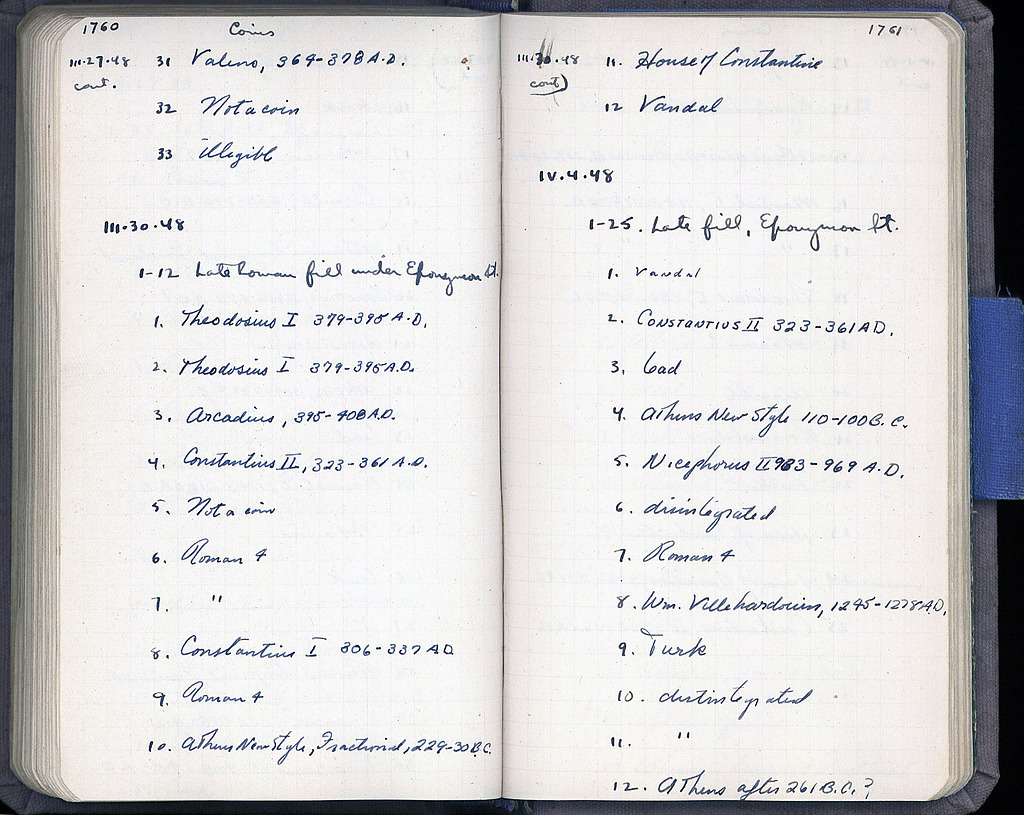 1760 Coins
III.27.48 31 Valens, 364-378 A.D.
cont.
32 Not a coin
33 illegible
III.30.48
1-12 Late Roman fill under Eponymon St.
1. Theodosius I 379-395 A.D.
2. Theodosius I 379-395 A.D.
3. Arcadius, 395-408 A.D.
4. Constantius II, 323-361 A.D.
5. Not a coin
6. Roman 4
7. "
8. Constantius I 306-337 AD
9. Roman 4
10. Athens New Style, Fractional, 229-30 B.C.
1761
III.30.48 11. House of Constantine
(cont)
12 Vandal
IV.4.48
1-25. Late fill, Eponymon St.
1. Vandal
2. Constantius II 323-361 AD.
3. bad
4. Athens New Style 110-100 B.C.
5. Nicephorus II 963-969 A.D.
6. disintegrated
7. Roman 4
8. Wm. Villehardouin, 1245-1278 A.D.
9. Turk
10. disintegrated
11. "
12. Athens after 261 B.C.?